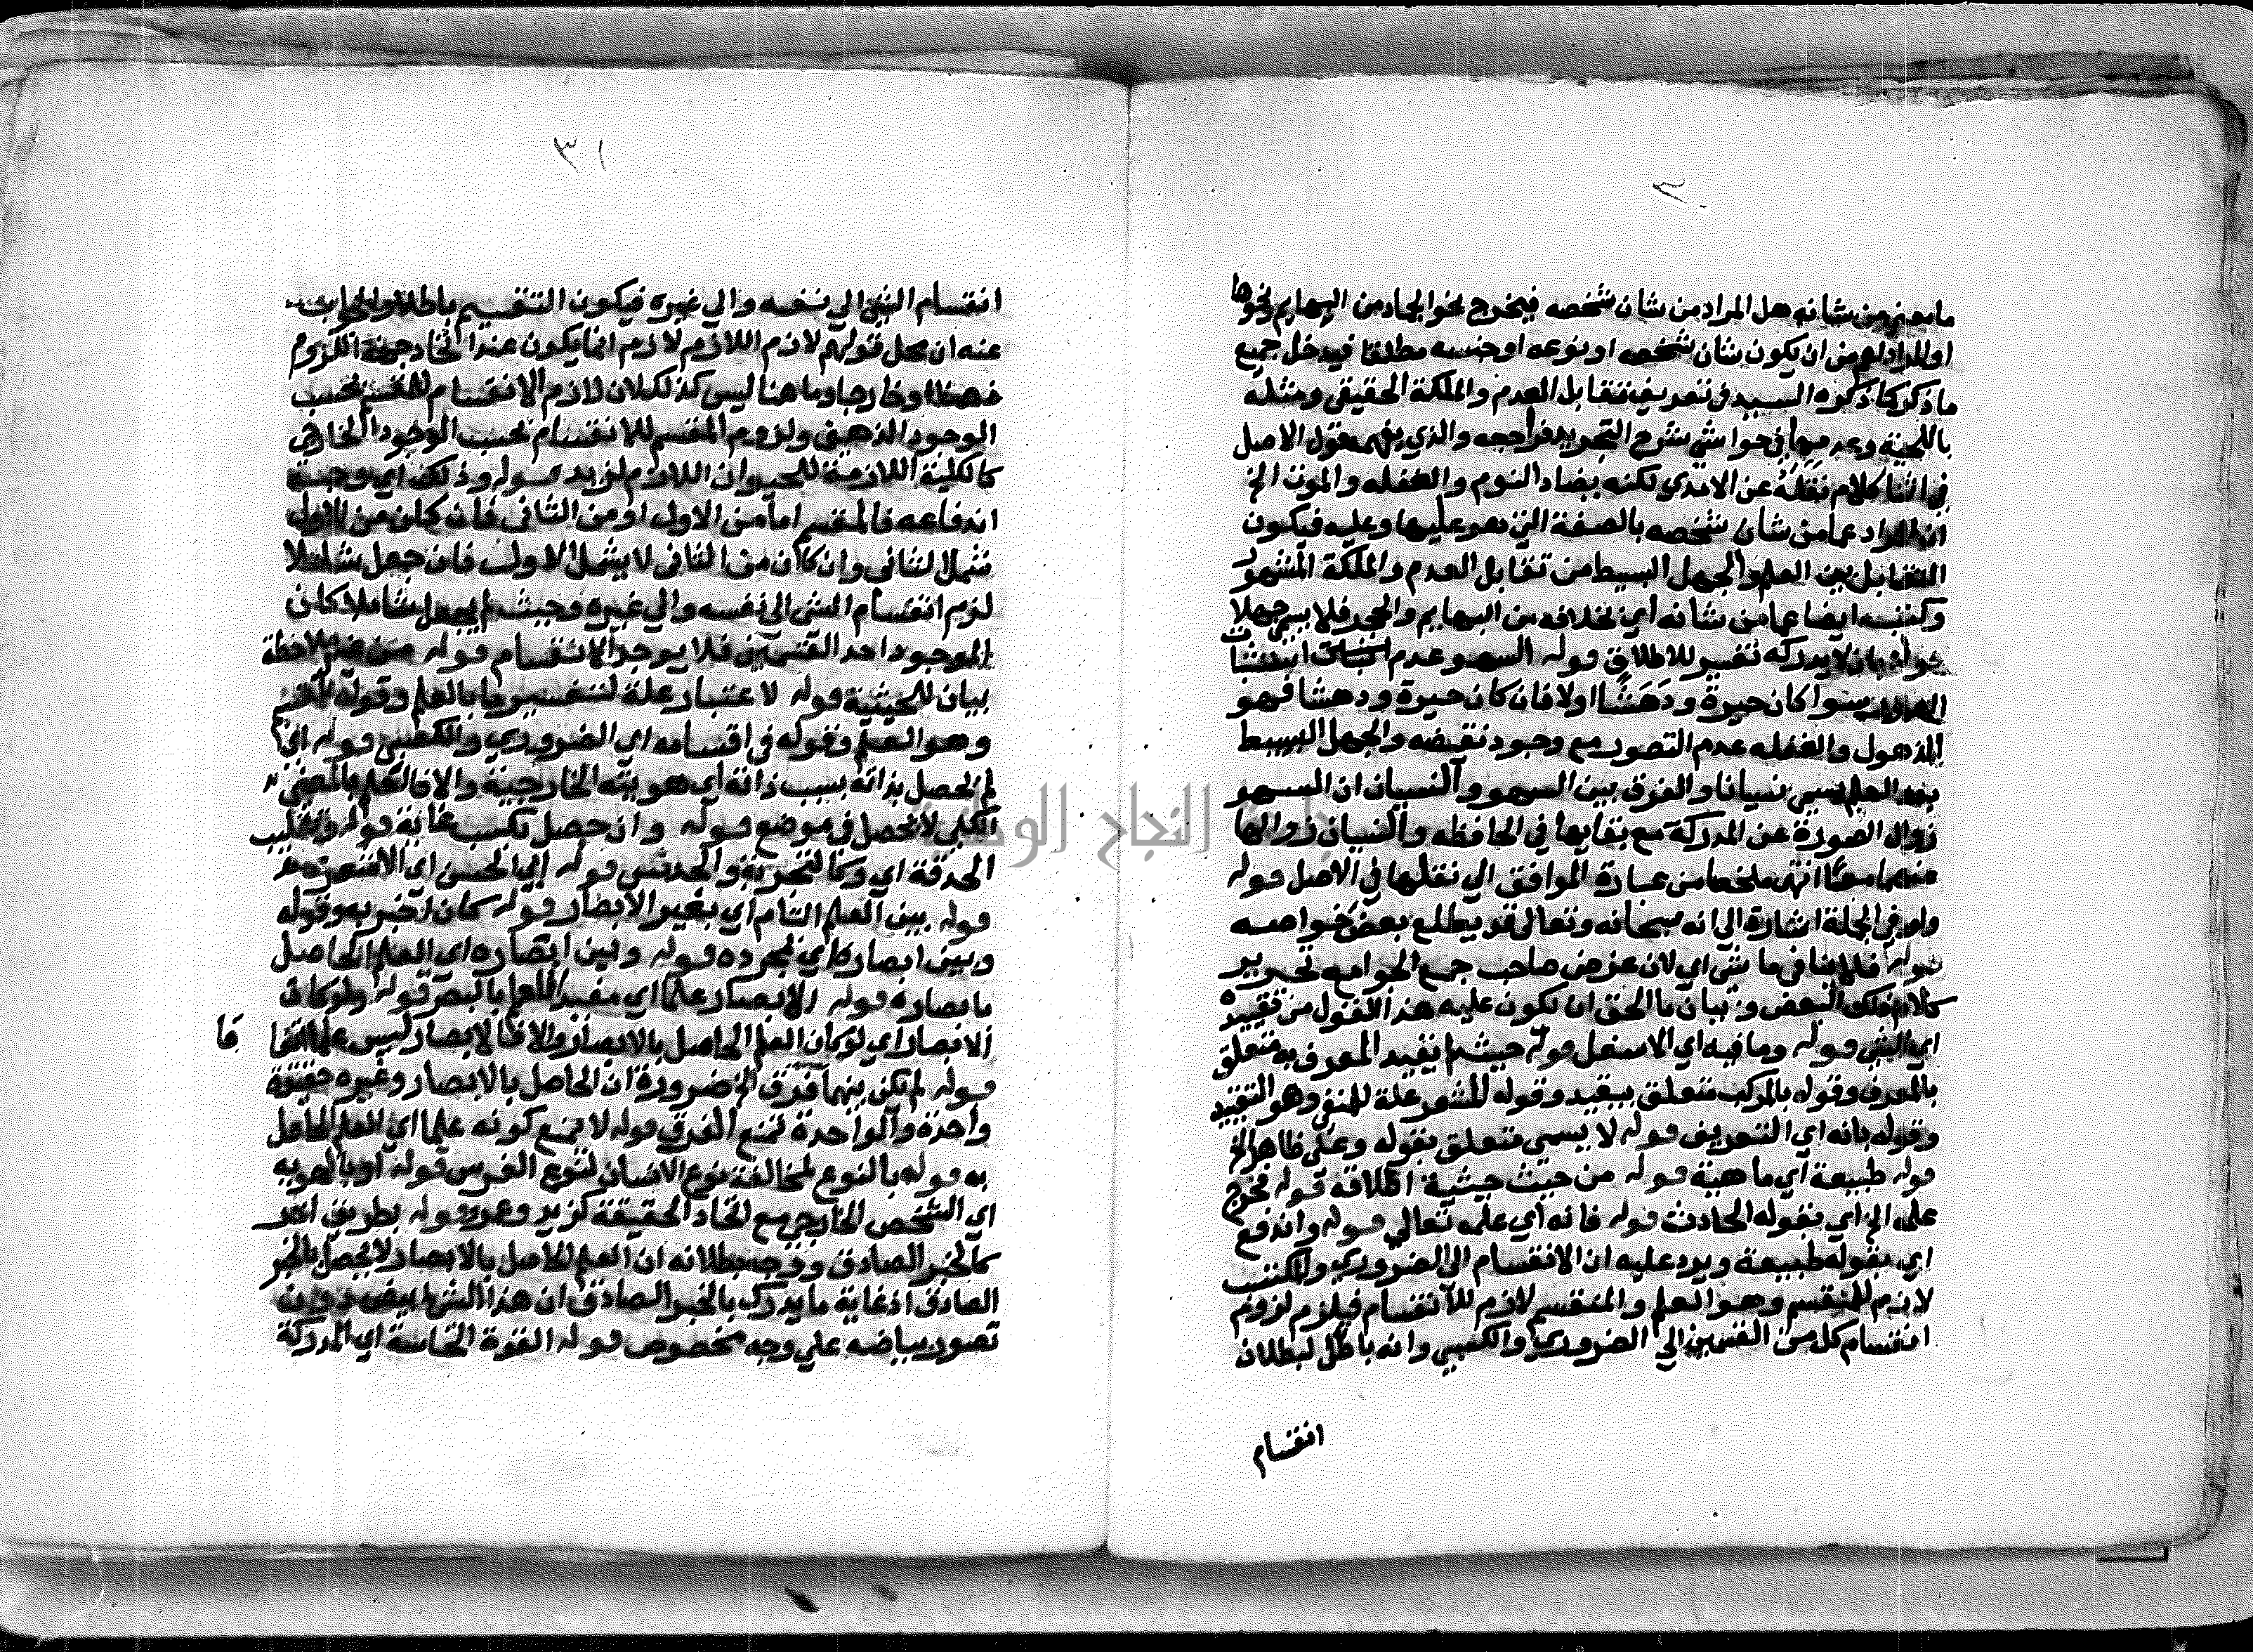 ٣٠
من شانه هل المراد من شان شخصه فيخرج نحو الجماد من البهايم ونحوها
او المراد من ان يكون شان شخصه او نوعه او جنسه مطلقا فيدخل جميع
ما ذكر كما ذكره السيد في تعريف تقابل العدم والملكة الحقيقي ومثله
في حواشي شرح التجريد فراجعه والذي يفهم الاصل
في اثنا كلام نقله عن الامدي لكنه يضاد النوم والغفله والموت الخ
ان المراد عما من شان شخصه بالصفة التي هو عليها وعليه فيكون
التقابل بين العلم والجهل البسيط من تقابل العدم والملكة المشهور
ايضا عما من شانه اي بخلافه من البهايم والحجر فلا يسمي جهلا
لا يدركه تفسير للاطلاق قوله السهو وعدم
سوا كان حيرة ودهشا او لا فان كان حيرة ودهشا فهو
الذهول والغفله عدم التصور مع وجود نقيضه والجهل البسيط
بعد العلم يسمي نسيانا والفرق بين السهو والنسيان ان السهو
زوال الصورة عن المدركة مع بقايها في الحافظه والنسيان زوالها
عنهما معا انتهى ملخصا من عبارة المواقف التي نقلها في الاصل قوله
ولو في الجملة اشارة الي انه سبحانه وتعالى قد يطلع بعض خواصه
قوله فلا ينافي ما شئ اي لان غرض صاحب جمع الجوامع تحرير
كلام ذلك البعض وتبيان ما الحق ان يكون عليه هذا القول من تقييده
اي الشئ قوله وما فيه اي الاسفل قوله حيث لم يقيد المعرف به متعلق
بالمعرف وقوله بالمركب متعلق بيقيد وقوله المشعر علة للمنفي وهو التقييد
وقوله بانه اي التعريف قوله لا يسمى متعلق بقوله وعلى ظاهر الخ
قوله طبيعة اي ماهية قوله من حيث حيثية اطلاقه قوله مخرج
علمه الخ اي بقوله الحادث قوله فانه اي علمه تعالي قوله واندفع
اي بقوله طبيعة ويرد عليه ان الانقسام الى الضروري والمكتسب
لازم للمنقسم وهو العلم والمنقسم لازم للانقسام فيلزم لزوم
انقسام كل من القسمين الي الضروري والكسبي وانه باطل لبطلان
انقسام
٣١
انقسام الشئ الي نفسه والي غيره فيكون التقسيم باطلا والجواب
عنه ان محل قولهم لازم اللازم لازم انما يكون عند اتحاد جهة اللزوم
ذهنا او خارجا وما هنا ليس كذلك لان لازم الانقسام للمقسم بحسب
الوجود الذهني ولزوم المقسم للانقسام بحسب الوجود الخارجي
كالكلية اللازمة للحيوان اللازم لزيد قوله وذلك اي وجه
اندفاعه فالمقسم اما من الاول او من الثاني فان كان من الاول
شمل الثاني وان كان من الثاني لا يشمل الاول فان جعل شاملا
لزم انقسام الشئ الى نفسه والي غيره وحيث لم يجعل شاملا كان
الموجود احد القسمين فلا يوجد الانقسام قوله من غير ملاحظة
بيان للحيثية قوله لا عتبار علة لتفسير ما بالعلم وقوله
وهو العلم وقوله في اقسامه اي الضروري والكسبي قوله اي
لم تحصل بذاته بسبب ذاته اي هويته الخارجية والا فالعلم بالمعنى
الكلي لا تحصل في موضع قوله وان حصل بكسب غايه قوله وتقليب
الحدقة اي وكالتجربة والحدس قوله اي الحسن اي الاشعري
قوله بين العلم التام اي بغير الابصار قوله كان اخبر به وقوله
وبين ابصاره اي لمجرده قوله وبين ابصاره اي العلم الحاصل
بابصاره قوله الابصار علما اي مفيدا للعلم بالبصر قوله ولو كان
الابصار اي لو كان العلم الحاصل بالابصار والا فالابصار ليس علما
فا
قوله لم يكن بينهما فرق الخ ضرورة ان الحاصل بالابصار وغيره حقيقة
واحدة والواحدة تمنع الفرق قوله لا تمنع كونه علما اي العلم الحاصل
به قوله بالنوع لمخالفة نوع الانسان لنوع الفرس قوله او بالهويه
اي الشخص الخارجي مع اتحاد الحقيقة كزيد وعمرو قوله بطريق اخر
كالخبر الصادق ووجه بطلانه ان العلم الحاصل بالابصار لا يحصل بالخبر
الصادق اذ غاية ما يدرك بالخبر الصادق ان هذا الشئ ابيض دون
تصور بياضه علي وجه مخصوص قوله القوة الحاسة اي المدركة